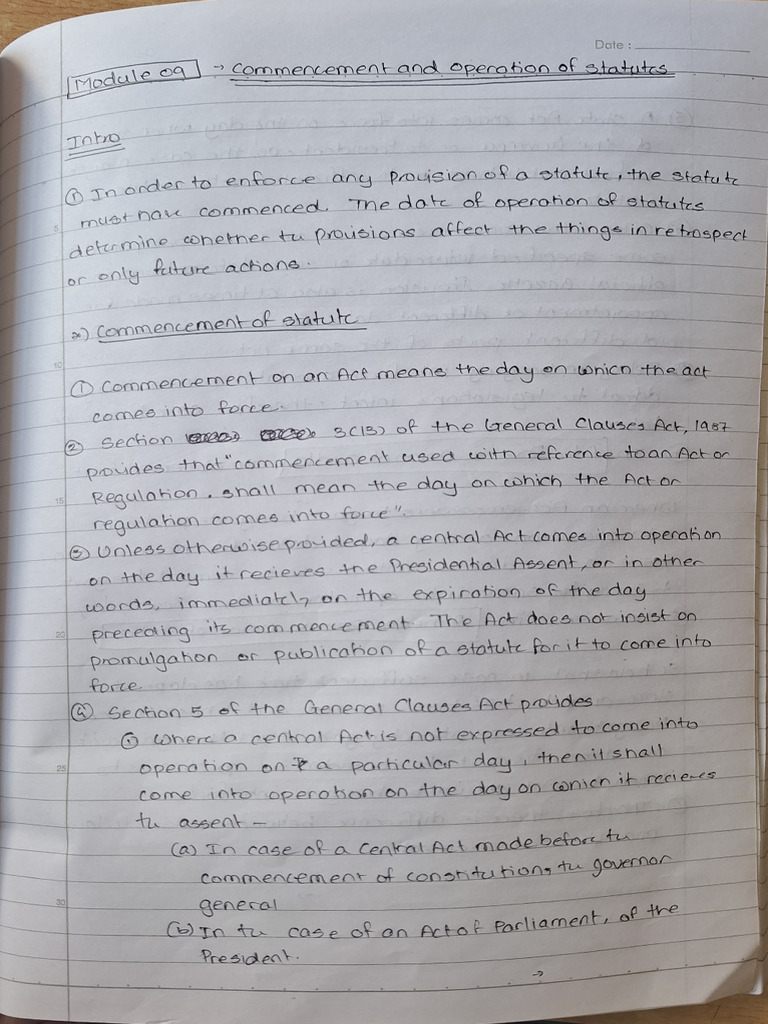 Date :
Module 09 → Commencement and operation of statutes
Intro
① In order to enforce any provision of a statute, the statute
must have commenced. The date of operation of statutes
determine whether tu provisions affect the things in retrospect
or only future actions.
*) Commencement of statute
① Commencement on an Act means the day on which the act
comes into force.
② Section 3(13) of the General Clauses Act, 1987
provides that "commencement used with reference to an Act or
Regulation, shall mean the day on which the Act or
regulation comes into force".
③ Unless otherwise provided, a central Act comes into operation
on the day it recieves the Presidential Assent, or in other
words, immediately on the expiration of the day
preceding its commencement. The Act does not insist on
promulgation or publication of a statute for it to come into
force.
④ Section 5 of the General Clauses Act provides
① Where a central Act is not expressed to come into
operation on a particular day, then it shall
come into operation on the day on which it recieves
tu assent –
(a) In case of a Central Act made before tu
commencement of constitution, tu governor
general
(b) In tu case of an Act of Parliament, of the
President.
→